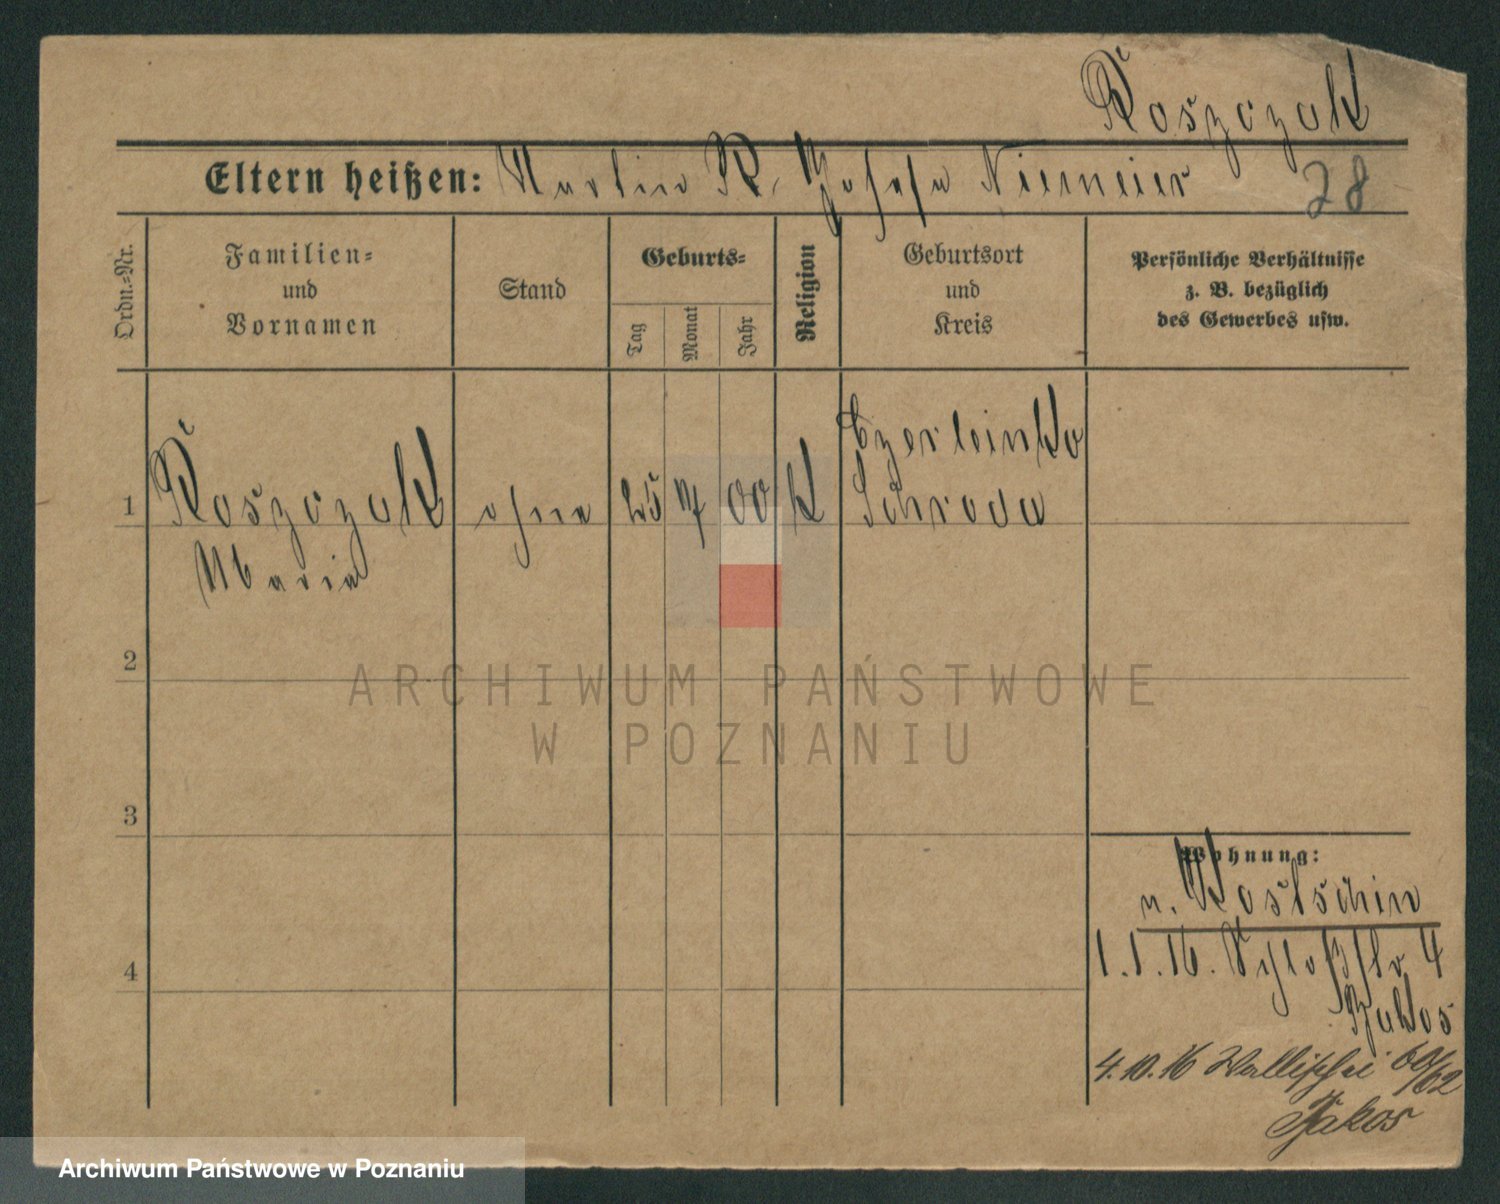 Koszczak
Eltern heißen: Martin K. Josefa Niemeier
28
Ordn.-Nr.
Familien-
und
Vornamen
Stand
Geburts-
Tag
Monat
Jahr
Religion
Geburtsort
und
Kreis
Persönliche Verhältnisse
z. B. bezüglich
des Gewerbes usw.
1
Koszczak
Maria
ohne
25
00
K
Czerleinko
Schroda
2
3
4
Wohnung:
n. Kostschin
1.1.16. Schloßstr 4
4.10.16 Wallischei 60/62
Jakos
ARCHIWUM PAŃSTWOWE
W POZNANIU
Archiwum Państwowe w Poznaniu